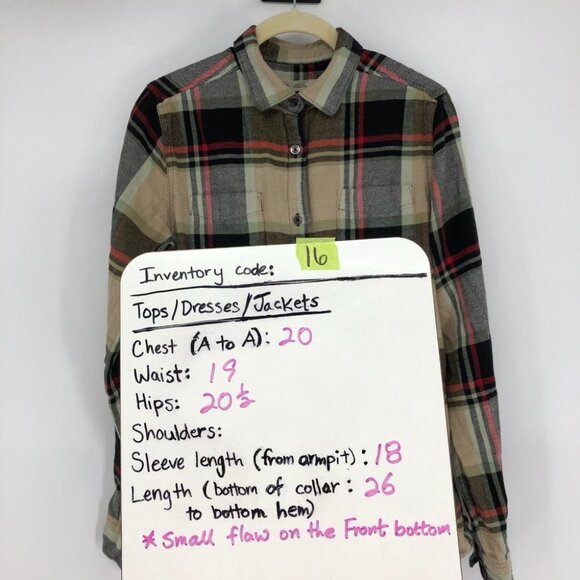 Inventory code: 16
Tops/Dresses/Jackets
Chest (A to A): 20
Waist: 19
Hips: 20 ½
Shoulders:
Sleeve length (from armpit): 18
Length (bottom of collar : 26
to bottom hem)
* Small flaw on the Front bottom